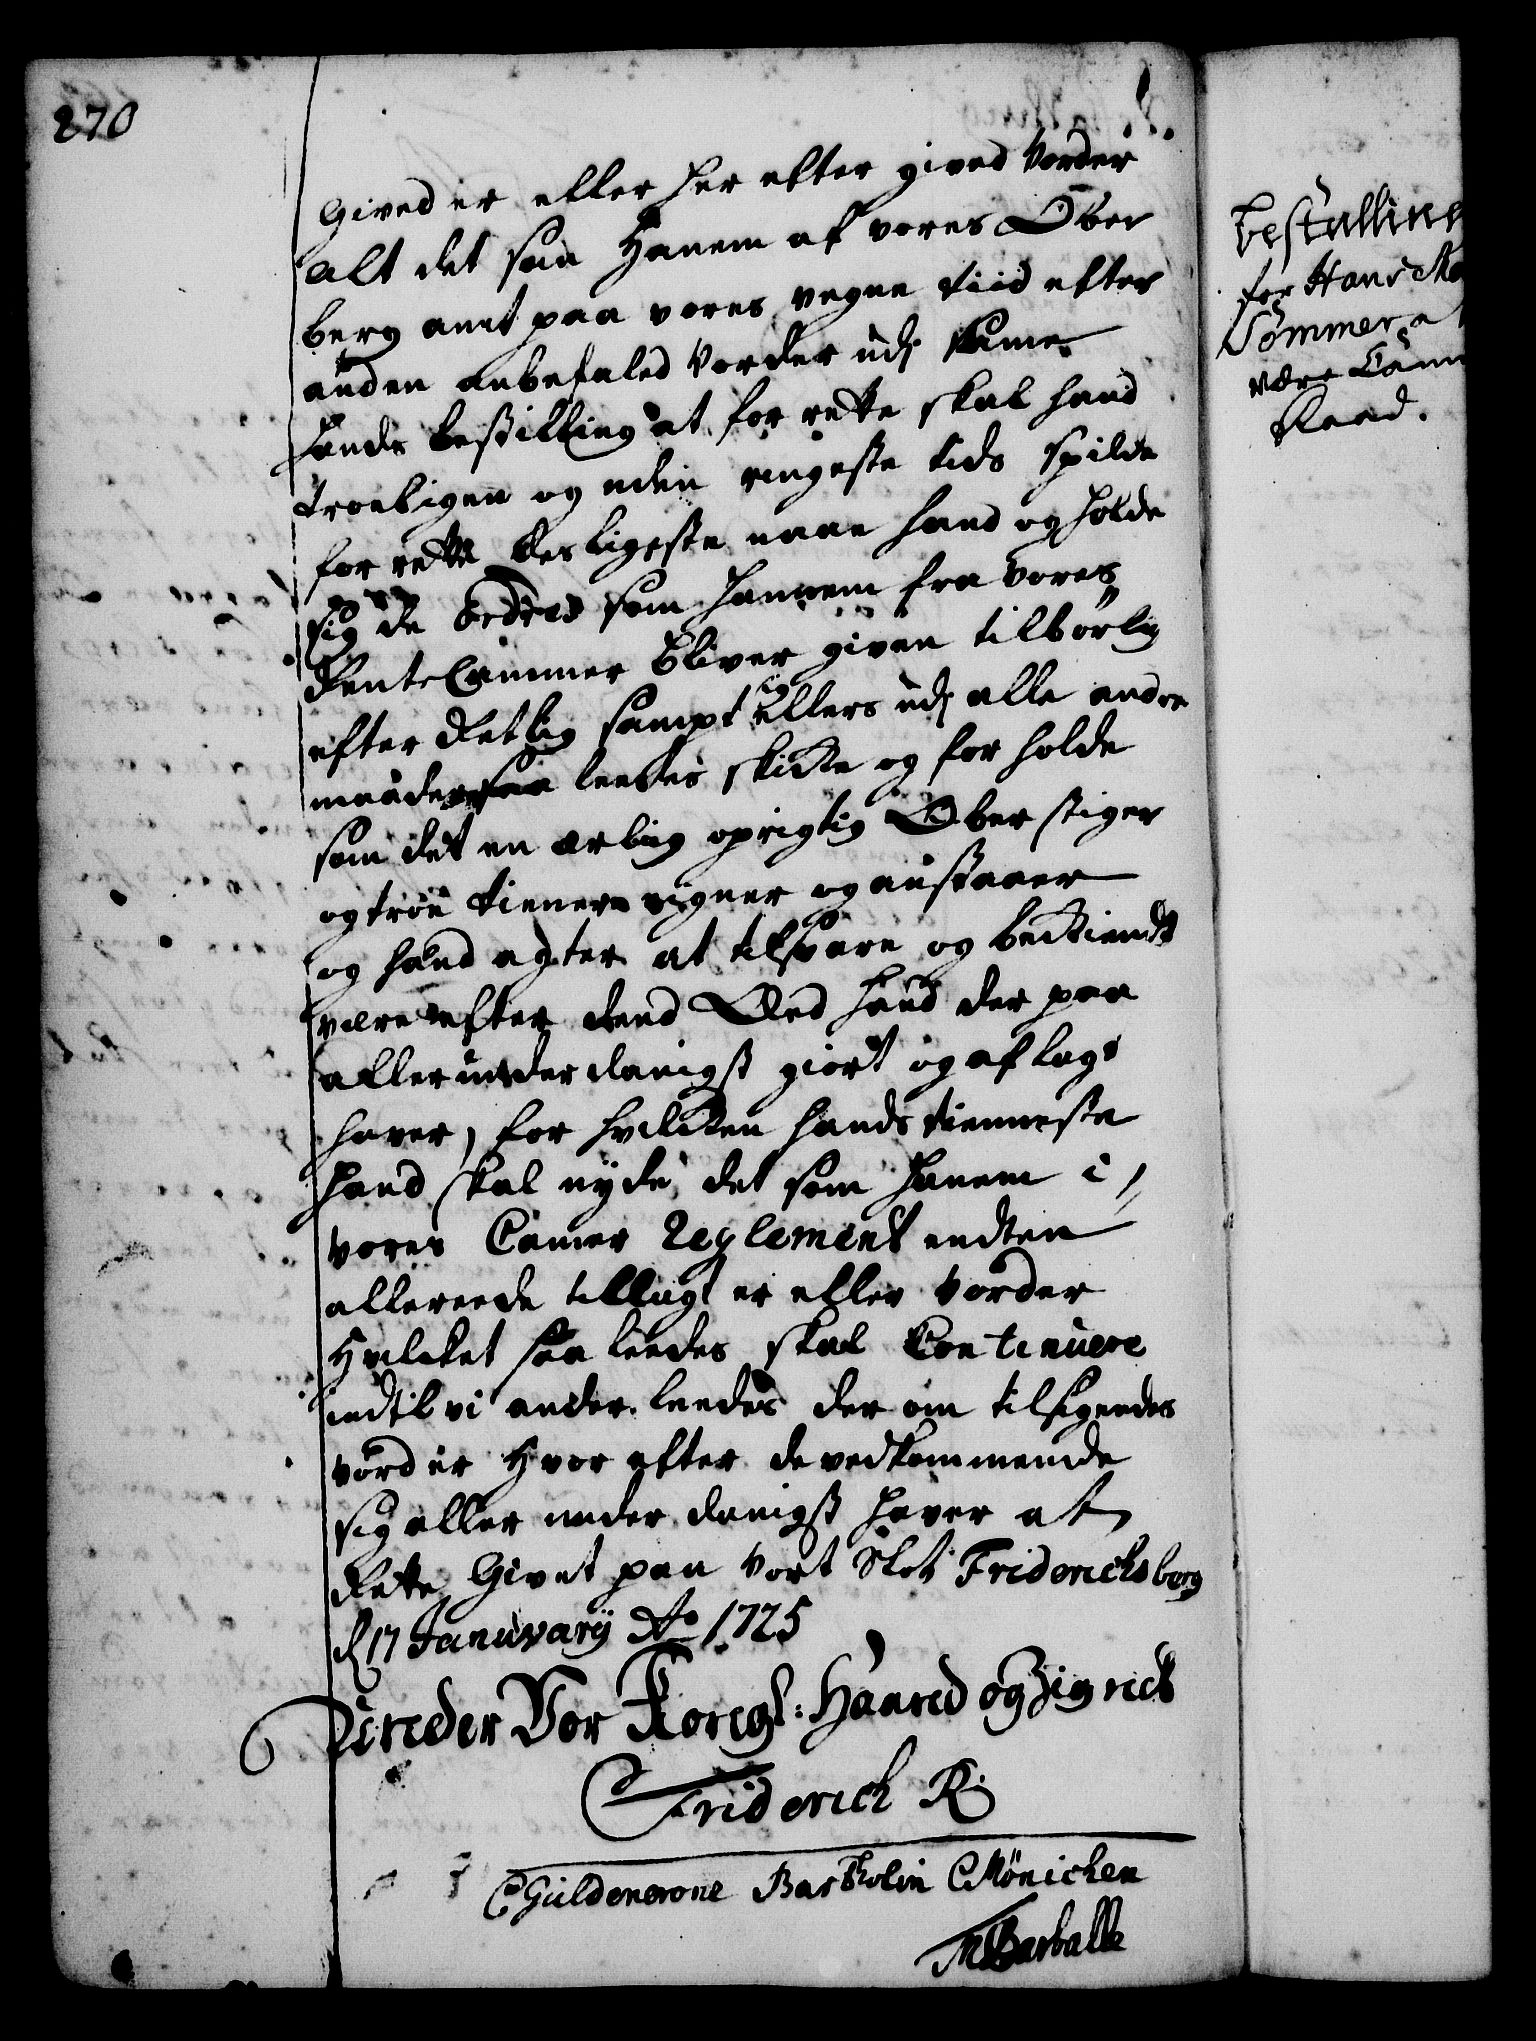 270
Gived er eller her efter gived vorder
alt det saa Hanem af vores Ober
berg amt paa vores vegne tiid efter
anden anbefaled vorder udj samme
hands bestilling at for rette skal hand
troeligen og uden ringeste tids spilde
for rette desligeste naar hand og holde
sig de ordres som hannem fra vores
RenteCammer bliver given tilbørlig
efter Rettlig sampt og ellers udj alle andre
maader saaleedes skikke og for holde
som det en ærlig oprigtig Ober stiger
og troe tienere eigner og anstaaer
og hand agter at tilsvare og bekiendt
være efter dend Eed hand der paa
aller underdanigst giort og aflagt
haver, for hvilcken hands tienneste
hand skal nyde, det som hanem i
vores Camer Reglement endten
allereede tillagt er eller vorder
Hvilcket saaleedes skal Continuere
indtil vi ander leedes der om tilsigendes
vorder Hvor efter de vedkommende
sig aller under danigst haver at
Rette, Givet paa Vort Slot Friderichsberg
d 17 Januvarij Ao 1725
Under Vor Kongl: Haand og Zignet
Friderich R.
C Güldencrone Bartholin C Mönichen
M Barballe
Bestalling
for Hans
Sommer at
være
Raad.